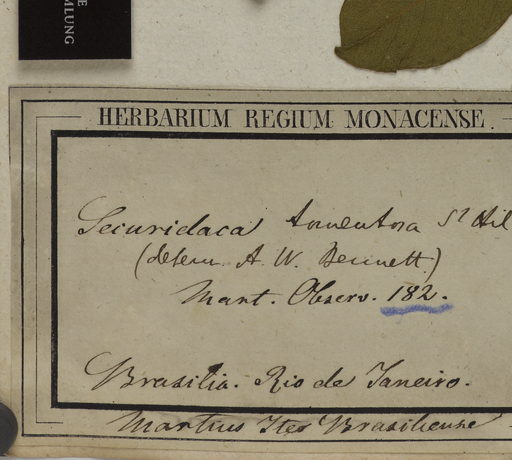 MLUNG
HERBARIUM REGIUM MONACENSE.
Securidaca tomentosa St Hil
(determ. A. W. Bennett.)
Mart. Observ. 182.
Brasilia. Rio de Janeiro.
Martius Iter Brasiliense